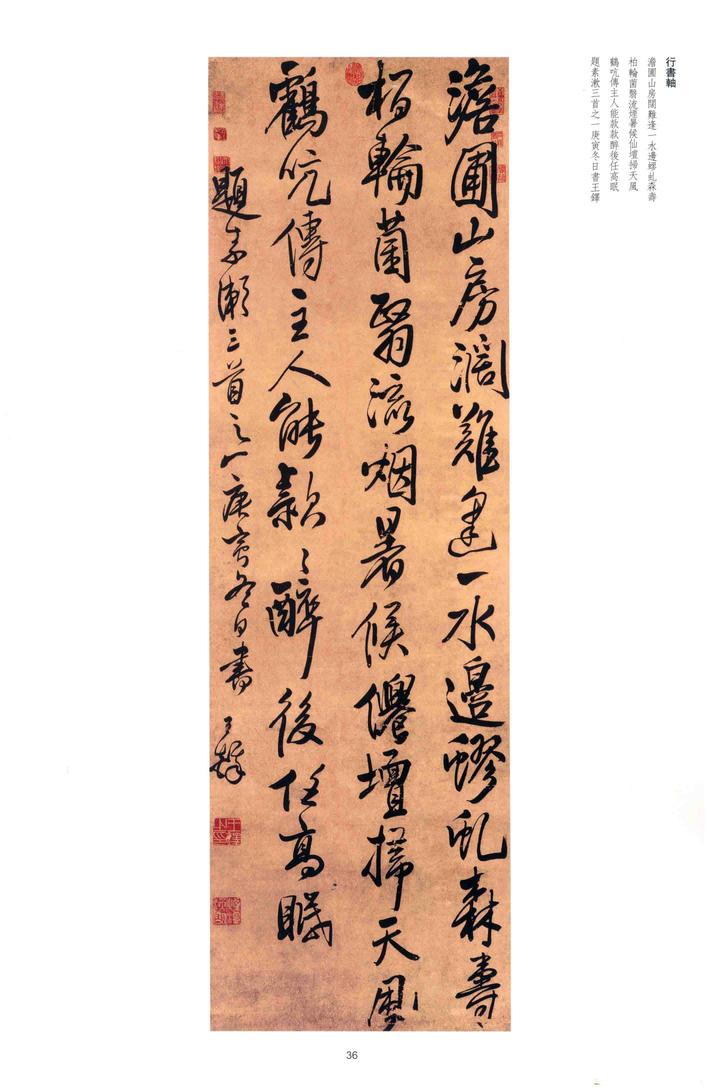 行書軸
澹圃山房闊難逢一水邊蟉虬森壽
柏輪菌翳流煙暑候仙壇掃天風
鶴吭傳主人能款款醉後任高眠
題素漱三首之一庚寅冬日書王鐸
澹圃山房濶難逢一水邉蟉虬森壽
柏輪菌翳流烟暑候僊壇掃天風
鶴吭傳主人能款〻醉後任高眠
題素漱三首之一庚寅冬日書王鐸
36